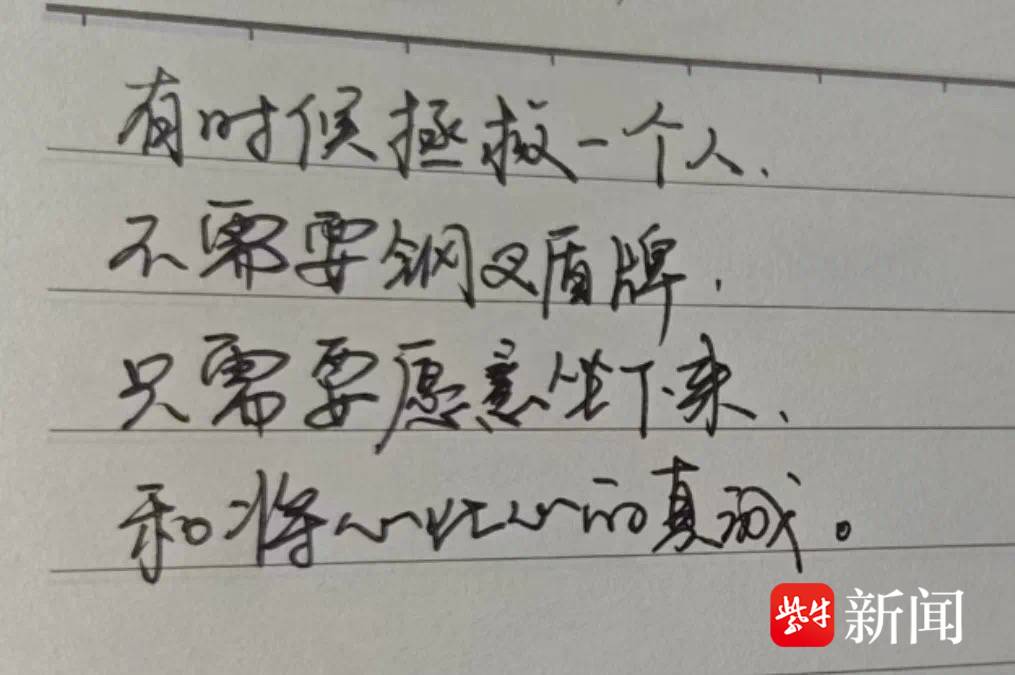 有时候拯救一个人、
不需要钢叉盾牌.
只需要愿意坐下来、
和将心比心的真诚。
紫牛新闻